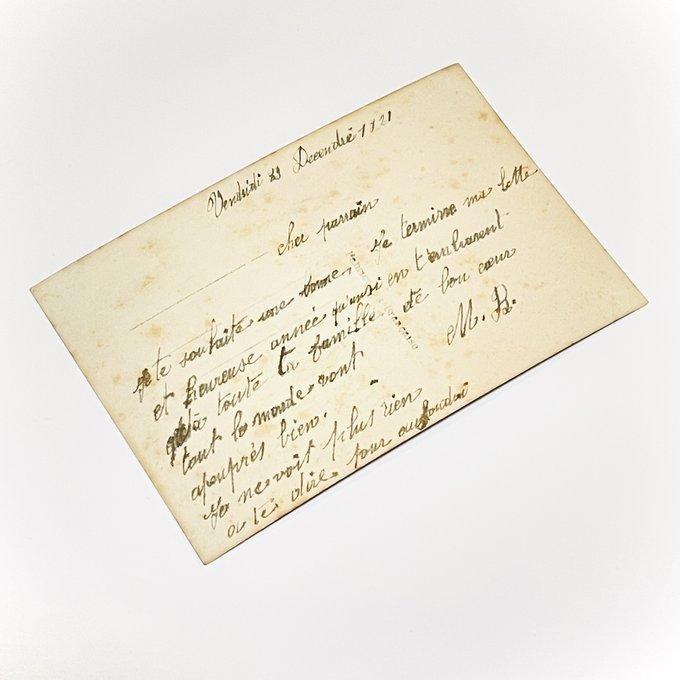 Vendridi 23 Decendré 1921
cher parrain
Je te souhaite une bonne
et heureuse année qu'ausi
toute ta famille
tout le monde vont
apeuprés bien.
Je ne voit plus rien
a te dire pour
Je termine ma lette
en t'embrasent
de bon cœur
M. B.